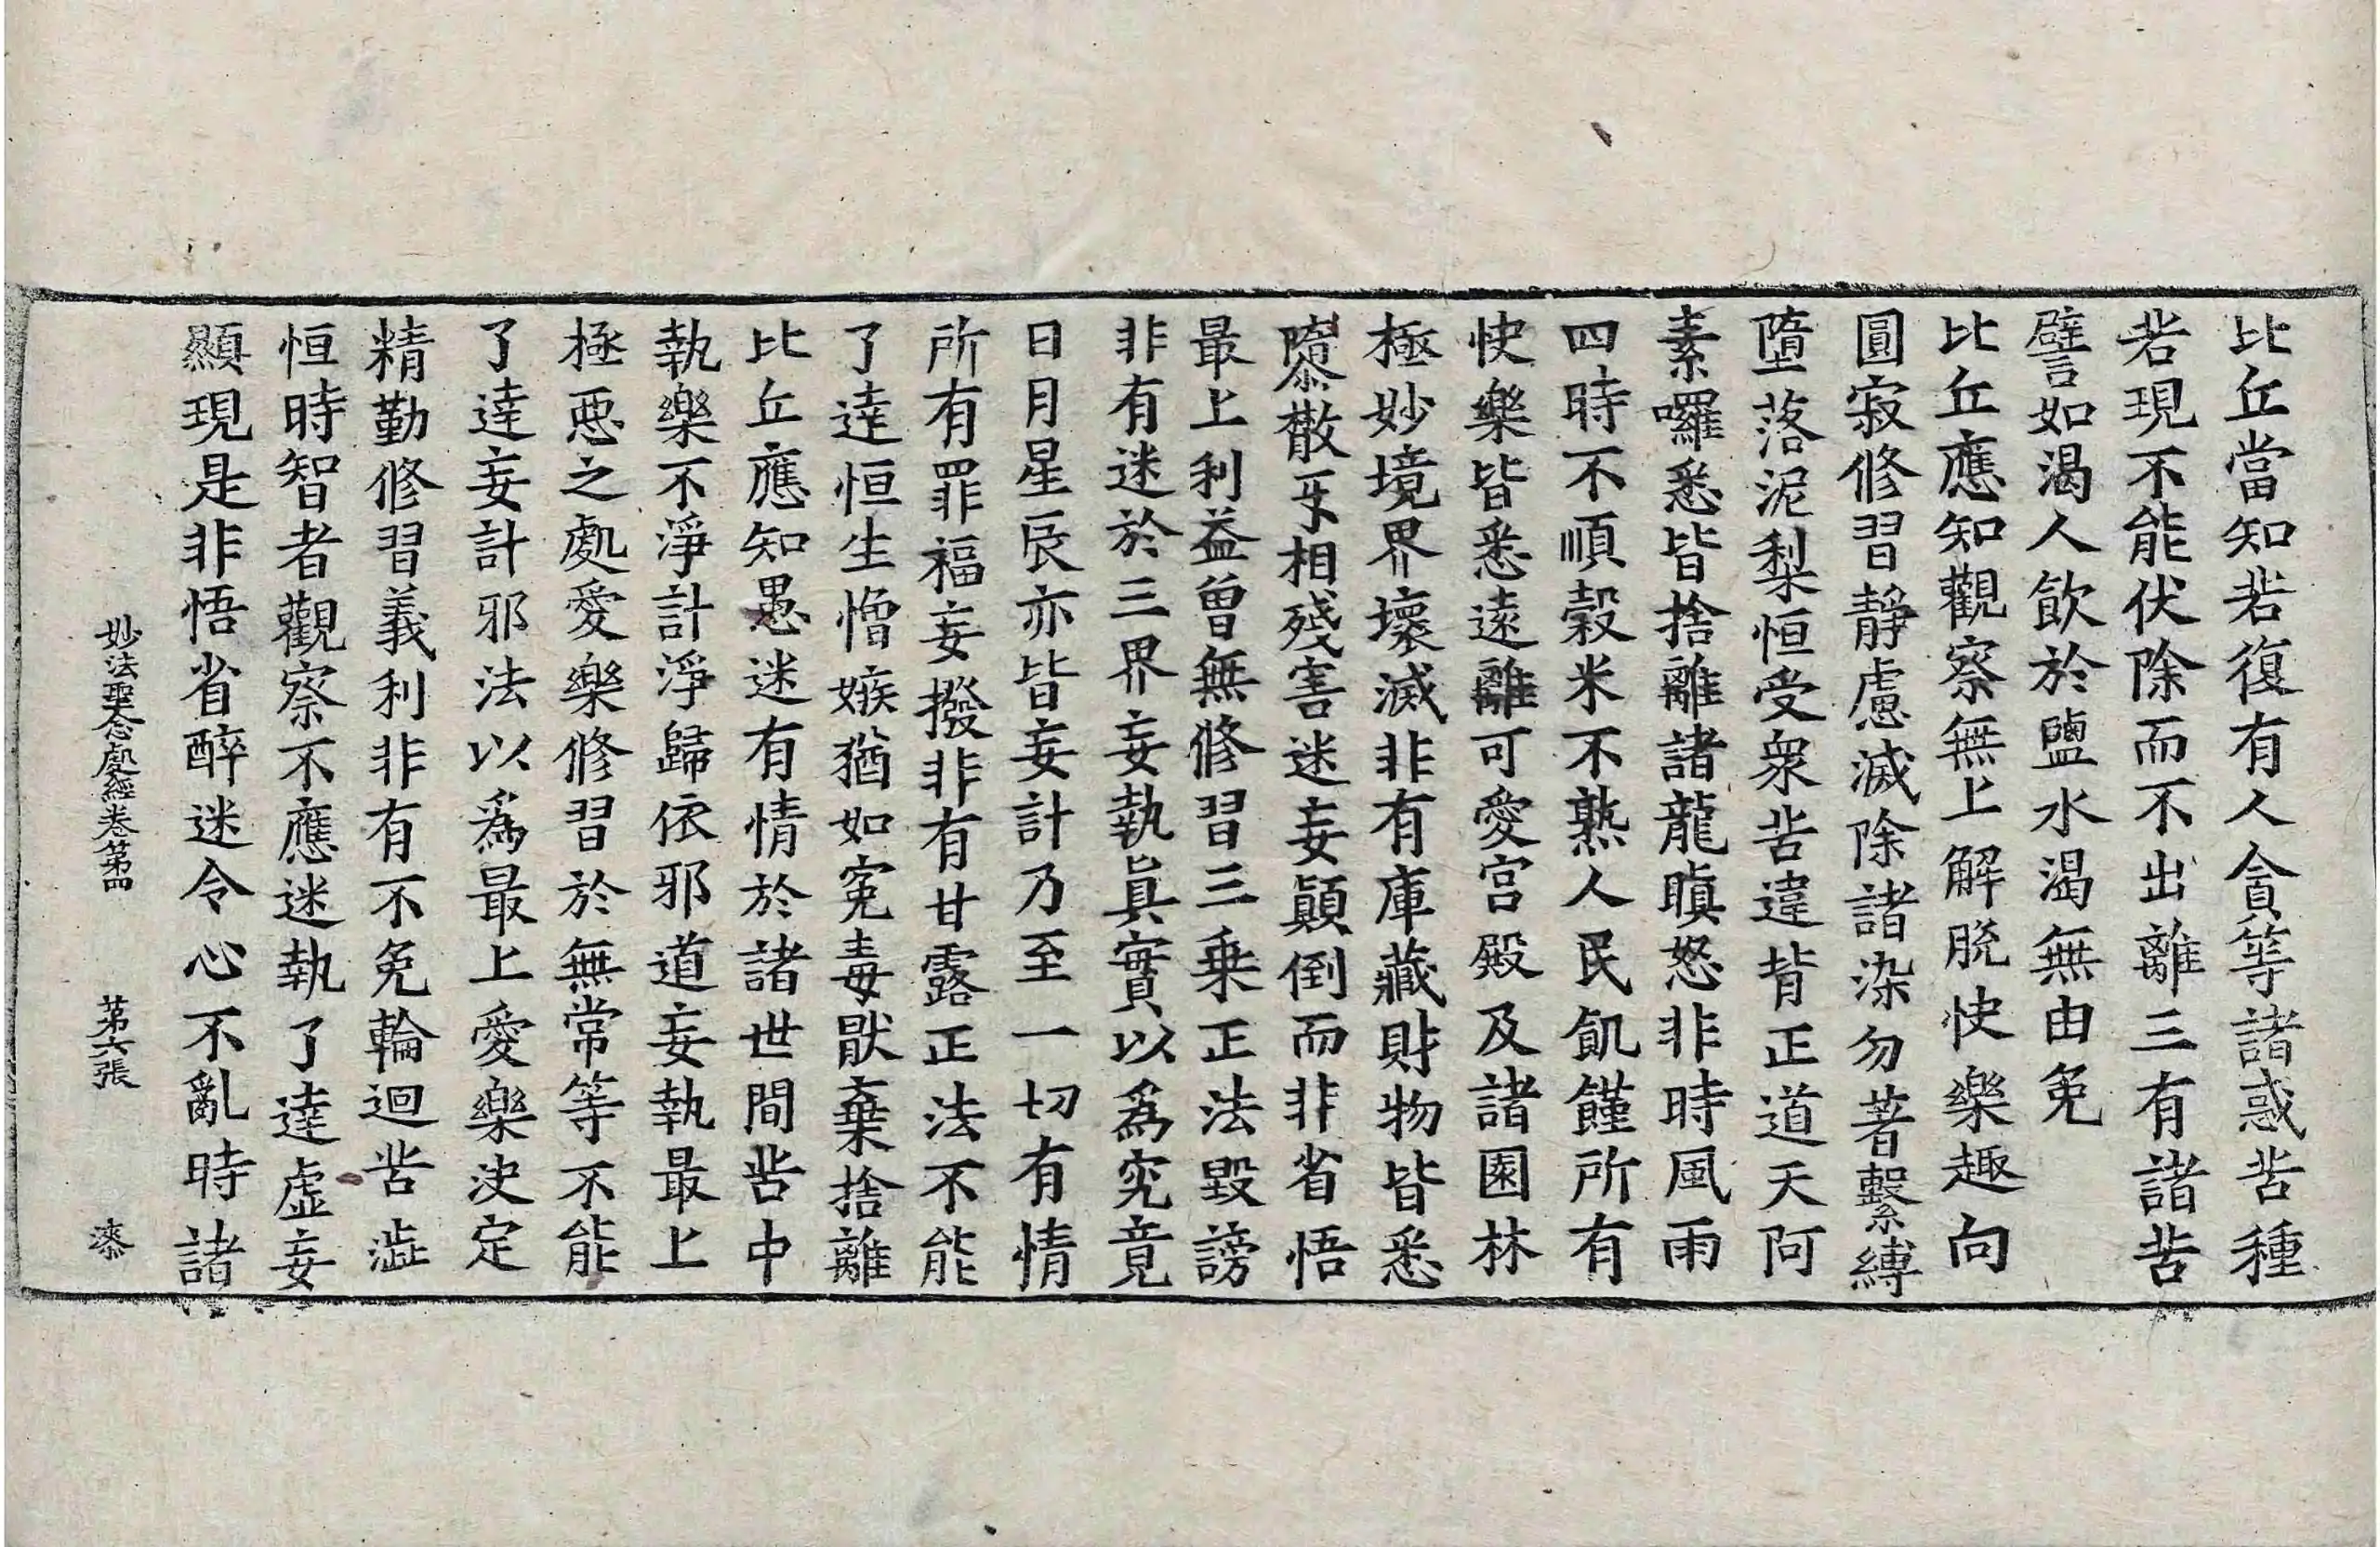 比丘當知若復有人貪等諸惑苦種
若現不能伏除而不出離三有諸苦
譬如渴人飲於鹽水渴無由免
比丘應知觀察無上解脫快樂趣向
圓寂修習靜慮滅除諸染勿著繫縛
墮落泥梨恒受衆苦違背正道天阿
素囉悉皆捨離諸龍瞋怒非時風雨
四時不順穀米不熟人民飢饉所有
快樂皆悉遠離可愛宮殿及諸園林
極妙境界壞滅非有庫藏財物皆悉
隳散互相殘害迷妄顚倒而非省悟
最上利益曾無修習三乘正法毀謗
非有迷於三界妄執眞實以爲究竟
日月星辰亦皆妄計乃至一切有情
所有罪福妄撥非有甘露正法不能
了達恒生憎嫉猶如寃毒猒棄捨離
比丘應知愚迷有情於諸世間苦中
執樂不淨計淨歸依邪道妄執最上
極惡之處愛樂修習於無常等不能
了達妄計邪法以爲最上愛樂決定
精勤修習義利非有不免輪迴苦澁
恒時智者觀察不應迷執了達虛妄
顯現是非悟省醉迷令心不亂時諸
妙法聖念處經卷第四 第六張 漆